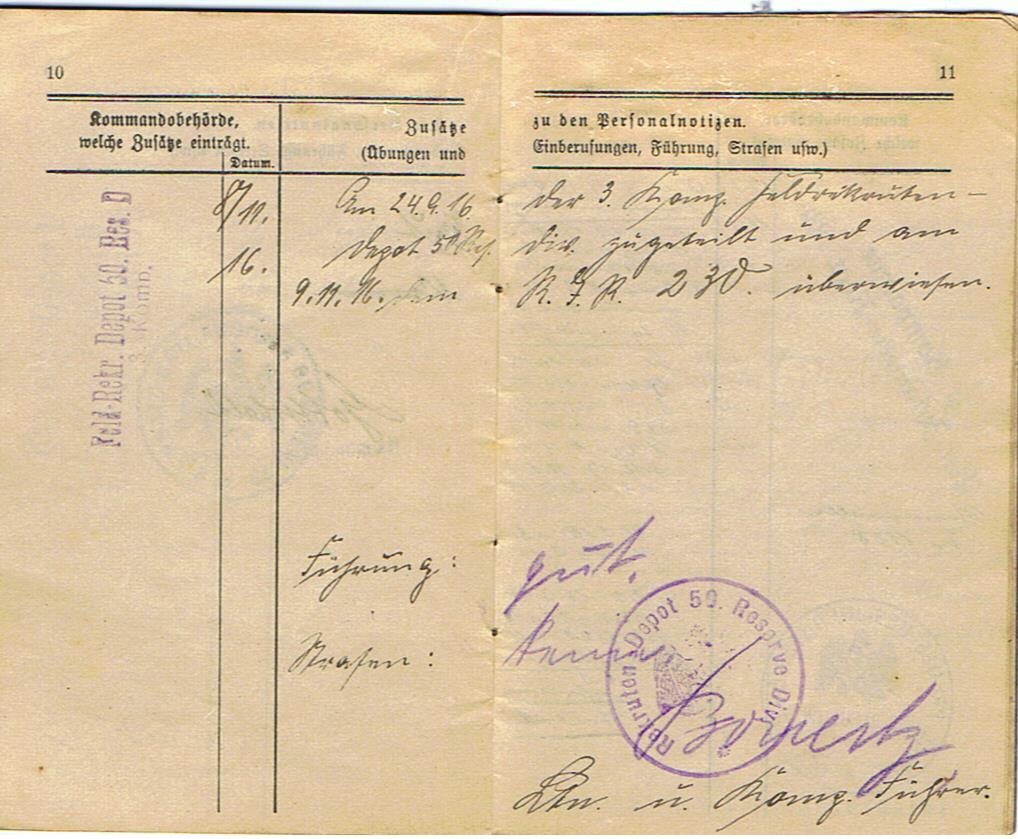 10
11
Kommandobehörde,
welche Zusätze einträgt.
Datum.
Zusätze
(Übungen und
zu den Personalnotizen.
Einberufungen, Führung, Strafen usw.)
Feld-Rekr. Depot 50. Res. D
3. Komp.
8/11.
16.
Am 24.9.16. der 3. Komp. Feldrekruten-
Depot 50 Res. Div. zugeteilt und am
9.11.16. dem R. I. R. 230. überwiesen.
Führung: gut.
Strafen: keine
Rekruten-Depot 50. Reserve Div.
Ltn. u. Komp. Führer.